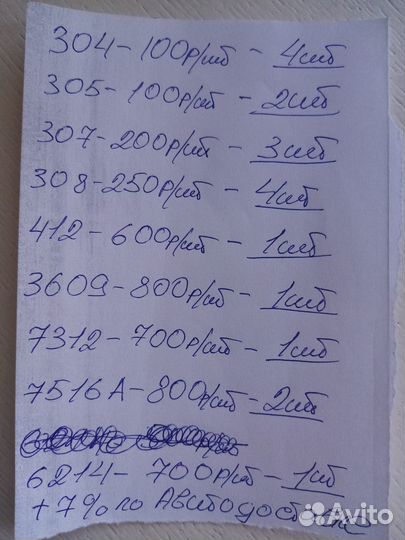 304 - 100р/шт - 4шт
305 - 100р/шт - 2шт
307 - 200р/шт - 3шт
308 - 250р/шт - 4шт
412 - 600р/шт - 1шт
3609 - 800р/шт - 1шт
7312 - 700р/шт - 1шт
7516А - 800р/шт - 2шт
6214 - 700р/шт - 1шт
+ 7% по Авитодост
Avito